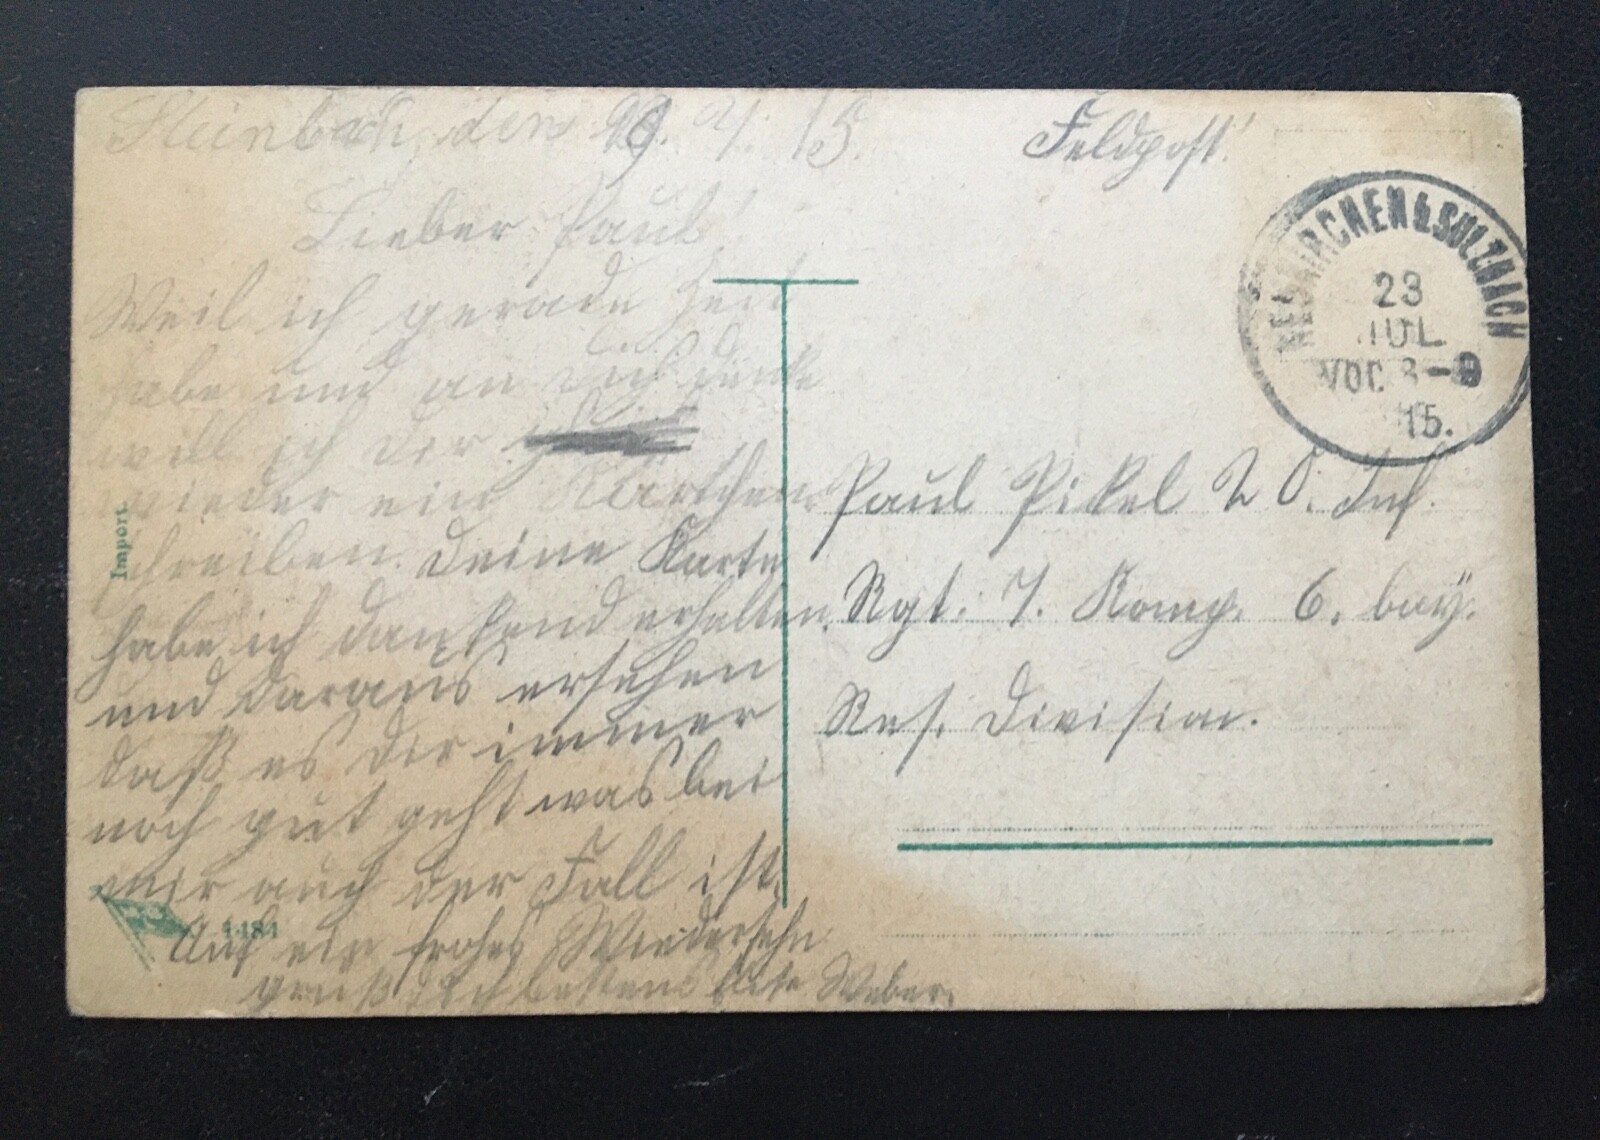 Steinbach, den 19. 7. 15.
Feldpost!
NEUKIRCHEN b. SULZBACH
23
JUL.
VOR 8-9
15.
Lieber Paul!
Weil ich gerade Zeit
habe und an Dich denke
will ich dir
wieder ein Kärtchen
schreiben. Deine Karte
habe ich dankend erhalten.
und daraus ersehen
daß es dir immer
noch gut geht was bei
mir auch der Fall ist.
Auf ein frohes Wiedersehn
grüßt dich bestens Weber.
Paul Pikel Inf.
Rgt. 7. Komp. 6. bay.
Res. Division.
Import.